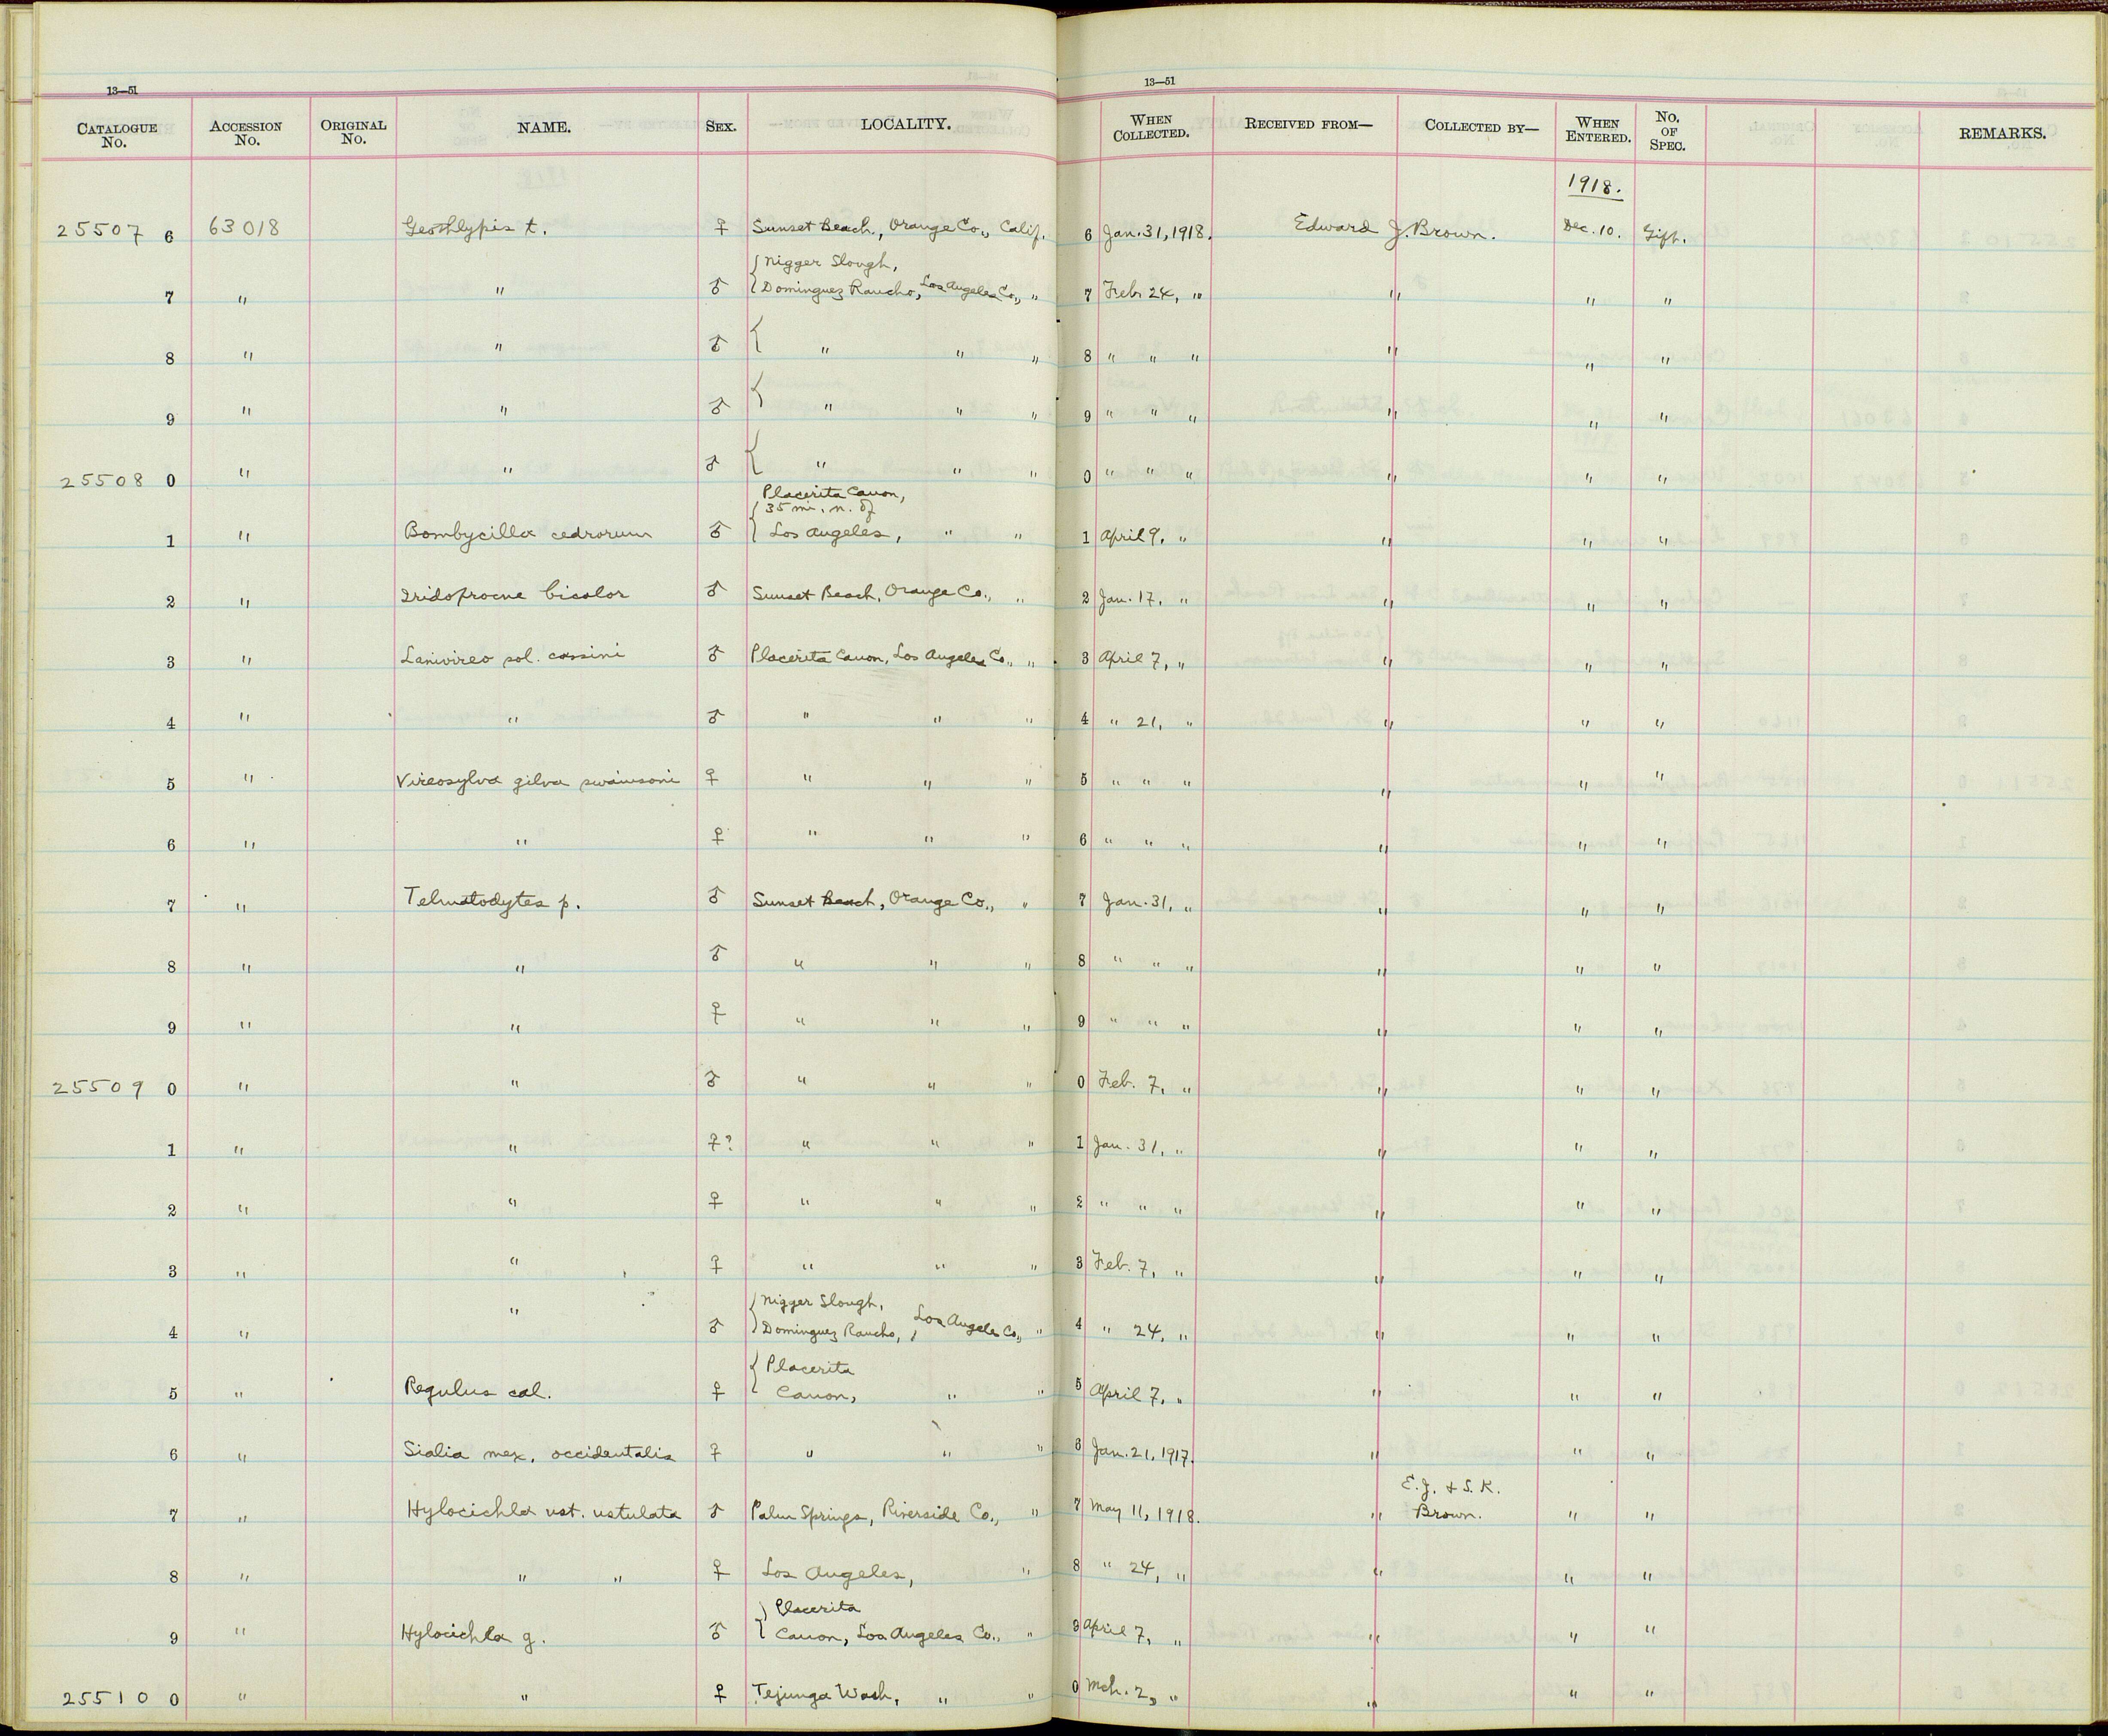 13—51
13—51
CATALOGUE No. ACCESSION No. ORIGINAL No. NAME. SEX. LOCALITY. WHEN COLLECTED. RECEIVED FROM— COLLECTED BY— WHEN ENTERED. No. OF SPEC. REMARKS.
1918.
25507 6 63018 Geothlypis t. ♀ Sunset Beach, Orange Co., Calif. 6 Jan. 31, 1918. Edward J. Brown. Dec. 10. Gift.
{ Nigger Slough,
7 " " ♂ Dominguez Rancho, Los Angeles Co., " 7 Feb. 24, " " " "
8 " " ♂ { " " " 8 " " " " " "
9 " " ♂ { " " " 9 " " " " " "
25508 0 " " ♂ { " " " 0 " " " " " "
Placerita Canon,
{ 35 mi. n. of
1 " Bombycilla cedrorum ♂ Los Angeles, " " 1 April 9, " " " "
2 " Iridoprocne bicolor ♂ Sunset Beach, Orange Co., " 2 Jan. 17, " " " "
3 " Lanivireo sol. cassini ♂ Placerita Canon, Los Angeles Co., " 3 April 7, " " " "
4 " " ♂ " " " 4 " 21, " " " "
5 " Vireosylva gilva swainsoni ♀ " " " 5 " " " " " "
6 " " ♀ " " " 6 " " " " " "
7 " Telmatodytes p. ♂ Sunset Beach, Orange Co., " 7 Jan. 31, " " " "
8 " " ♂ " " " 8 " " " " " "
9 " " ♀ " " " 9 " " " " " "
25509 0 " " ♂ " " " 0 Feb. 7, " " " "
1 " " ♀? " " " 1 Jan. 31, " " " "
2 " " ♀ " " " 2 " " " " " "
3 " " ♀ " " " 3 Feb. 7, " " " "
{ Nigger Slough,
4 " " ♂ Dominguez Rancho, Los Angeles Co., " 4 " 24, " " " "
{ Placerita
5 " Regulus cal. ♀ Canon, " " 5 April 7, " " " "
6 " Sialia mex. occidentalis ♀ " " " 6 Jan. 21, 1917. " " "
E. J. & S. K.
7 " Hylocichla ust. ustulata ♂ Palm Springs, Riverside Co., " 7 May 11, 1918. " Brown. " "
8 " " " ♀ Los Angeles, " 8 " 24, " " " "
{ Placerita
9 " Hylocichla g. ♂ Canon, Los Angeles Co., " 9 April 7, " " " "
25510 0 " " ♀ Tejunga Wash, " " 0 Mch. 2, " " " "